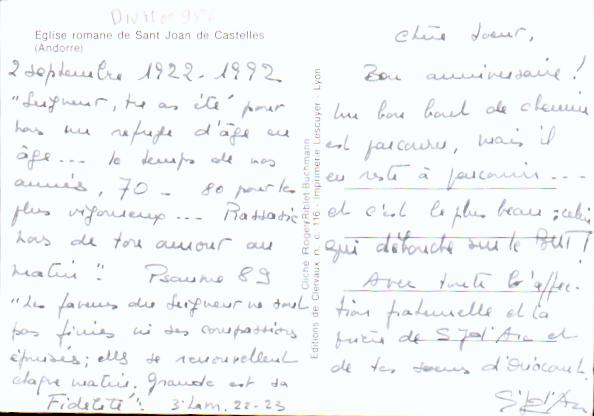 Eglise romane de Sant Joan de Castelles
(Andorre)
2 septembre 1922 - 1992
"Seigneur, tu as été pour
nous un refuge d'âge en
âge... le temps de nos
années, 70 - 80 pour les
plus vigoureux... Rassasie
nous de ton amour au
matin". Psaume 89
"Les faveurs du Seigneur ne sont
pas finies ni ses compassions
épuisées; elles se renouvellent
chaque matin. Grande est sa
Fidélité". 3 Lam. 22-23
Cliché Roger Riblet Buchmann
Editions de Clervaux n. c. 116 - Imprimerie Lescuyer - Lyon
Chère Soeur,
Bon anniversaire!
Un bon bout de chemin
est parcouru, mais il
en reste à parcourir...
et c'est le plus beau; celui
qui débouche sur le BUT!
Avec toute l'affec-
tion fraternelle et la
prière de S. J. d'Arc et
de tes soeurs d'
S. J. d'Arc